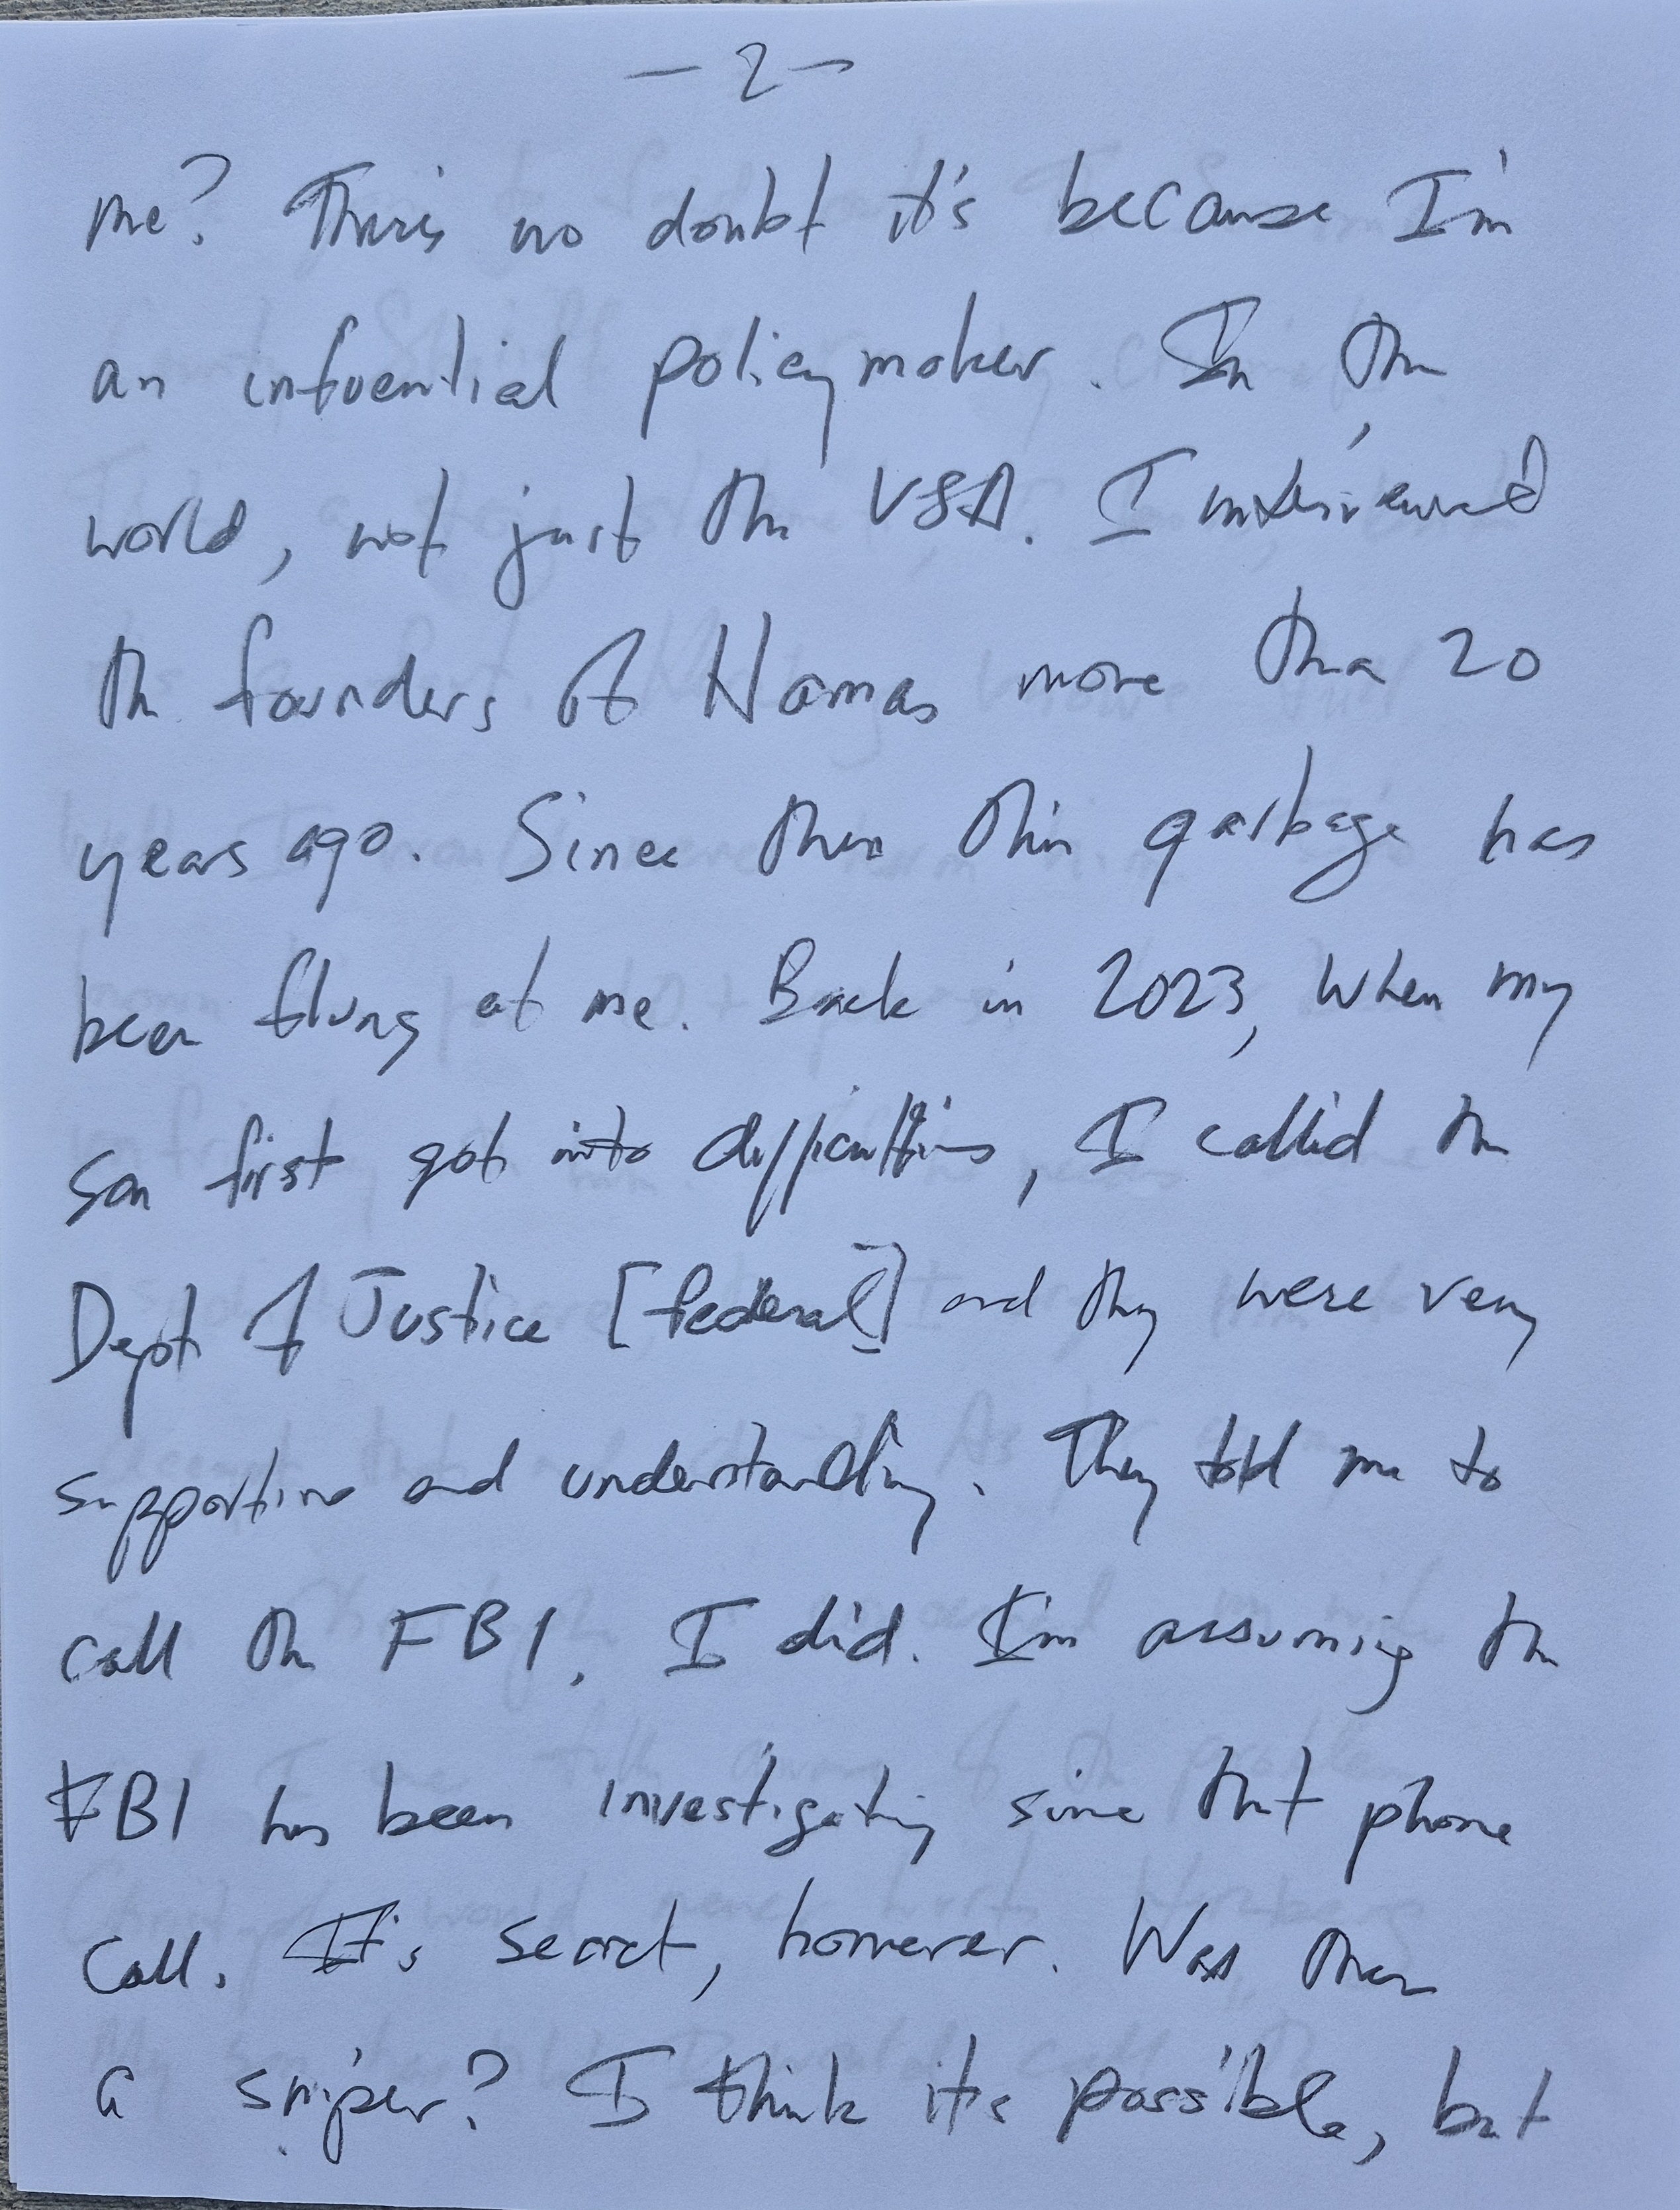 - 2 -
me? There's no doubt it's because I'm
an infuential policymaker. In the
world, not just the USA. I interviewed
the founders of Hamas more than 20
years ago. Since then this garbage has
been flung at me. Back in 2023, when my
son first got into difficulties, I called the
Dept of Justice [federal] and they were very
supportive and understanding. They told me to
call the FBI. I did. I'm assuming the
FBI has been investigating since that phone
call. It's secret, however. Was there
a sniper? I think it's possible, but